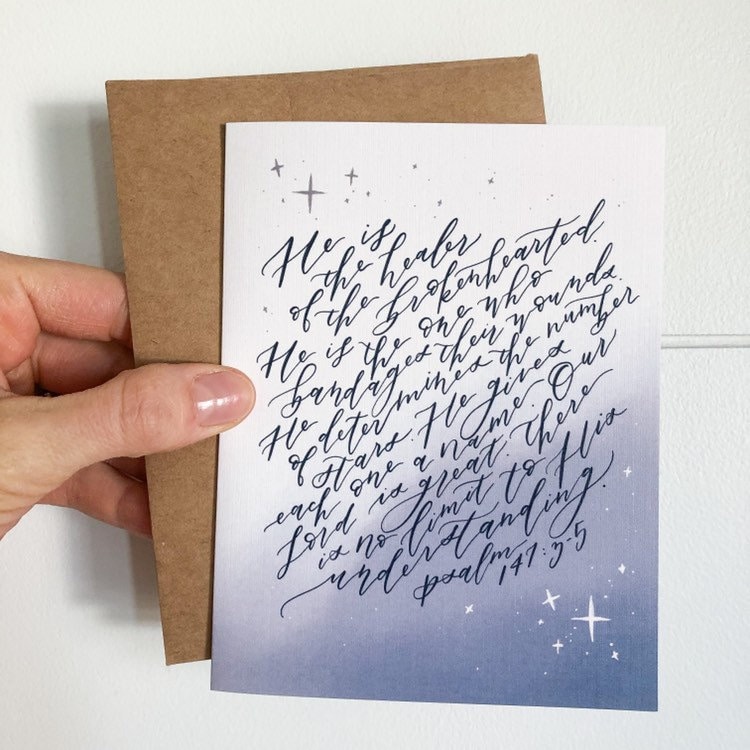 He is
the healer
of the brokenhearted.
He is the one who
bandages their wounds.
He determines the number
of stars. He gives
each one a name. Our
Lord is great. There
is no limit to His
understanding.
psalm 147:3-5